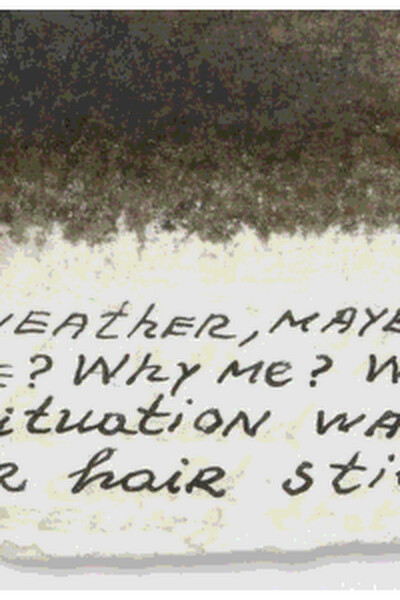 WEATHER, MAYBE
E? Why ME? W
situation WA
R hair sti